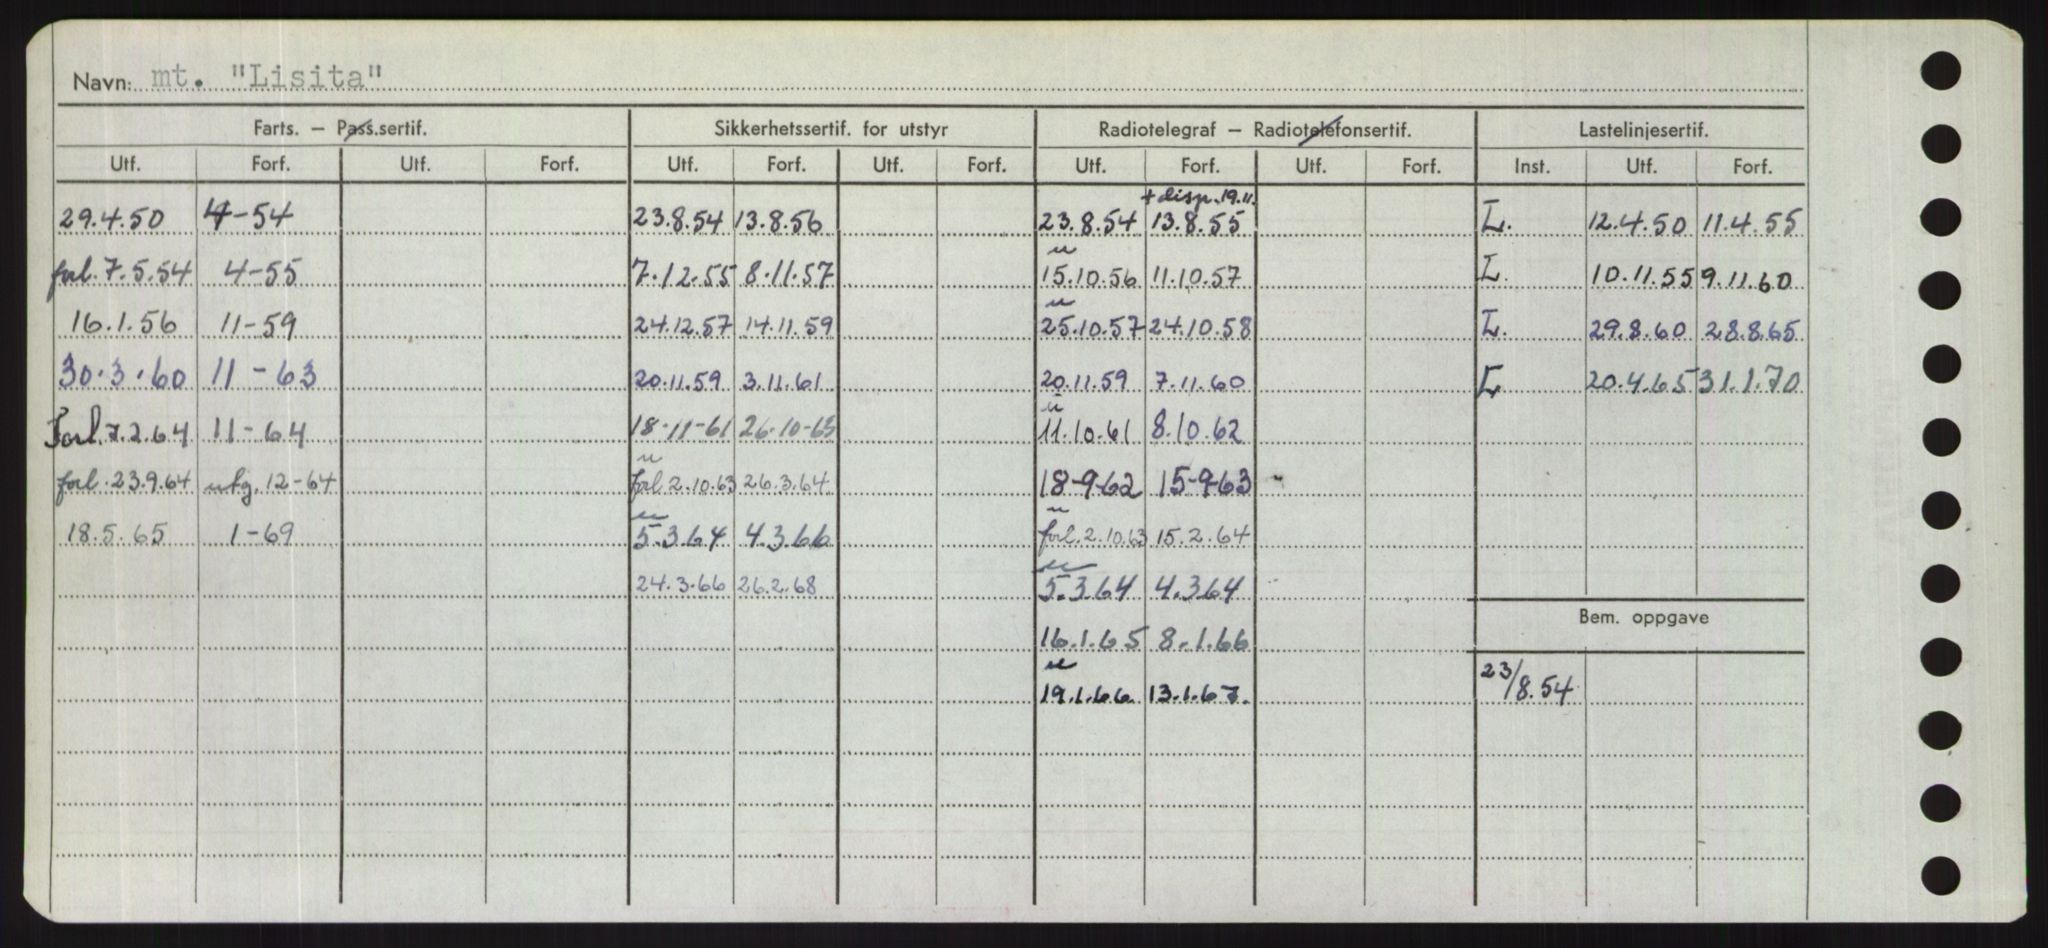 Navn: mt. "Lisita"
Farts. – Pass.sertif. Sikkerhetssertif. for utstyr Radiotelegraf – Radiotelefonsertif. Lastelinjesertif.
Utf. Forf. Utf. Forf. Utf. Forf. Utf. Forf. Utf. Forf. Utf. Forf. Inst. Utf. Forf.
+ disp. 19.11.
29.4.50 4-54 23.8.54 13.8.56 23.8.54 13.8.55 L. 12.4.50 11.4.55
u
forl. 7.5.54 4-55 7.12.55 8.11.57 15.10.56 11.10.57 L. 10.11.55 9.11.60
u
16.1.56 11-59 24.12.57 14.11.59 25.10.57 24.10.58 L. 29.8.60 28.8.65
30.3.60 11-63 20.11.59 3.11.61 20.11.59 7.11.60 L 20.4.65 31.1.70
u
Forl. 7.2.64 11-64 18-11-61 26-10-63 11.10.61 8.10.62
u
forl. 23.9.64 utg. 12-64 forl 2.10.63 26.3.64 18-9-62 15-9-63
u u
18.5.65 1-69 5.3.64 4.3.66 forl. 2.10.63 15.2.64
u
24.3.66 26.2.68 5.3.64 4.3.64
Bem. oppgave
16.1.65 8.1.66
u
19.1.66 13.1.67. 23/8.54